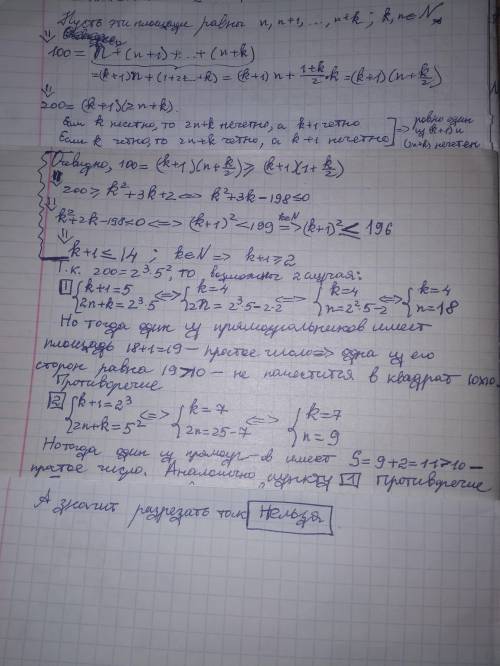 Пусть эти площади равны n, n+1, ..., n+k; k, n∈N
⇓
100 = n + (n+1) + ... + (n+k)
= (k+1)n + (1+2+...+k) = (k+1)n + \frac{1+k}{2}·k = (k+1)(n+\frac{k}{2})
⇓
200 = (k+1)(2n+k).
Если k нечетно, то 2n+k нечетно, а k+1 четно
Если k четно, то 2n+k четно, а k+1 нечетно ] ⇒ ровно один из (k+1) и (2n+k) нечетен
Очевидно, 100 = (k+1)(n+\frac{k}{2}) ⩾ (k+1)(1+\frac{k}{2})
⇓
200 ⩾ k²+3k+2 ⇔ k²+3k-198⩽0
⇓
k²+2k-198⩽0 ⇔ (k+1)²⩽199 k∈N ⇒ (k+1)² ⩽ 196
⇓
k+1 ⩽ 14 ; k∈N ⇒ k+1⩾2
Т.к. 200=2³·5², то возможны 2 случая:
1 { k+1=5 2n+k=2³·5 ⇔ { k=4 2n=2³·5-2·2 ⇔ { k=4 n=2²·5-2 ⇔ { k=4 n=18
Но тогда один из прямоугольников имеет
площадь 18+1=19 – простое число ⇒ одна из его
сторон равна 19>10 – не поместится в квадрат 10x10.
Противоречие
2 { k+1=2³ 2n+k=5² ⇔ { k=7 2n=25-7 ⇔ { k=7 n=9
Но тогда один из прямоуг-в имеет S=9+2=11>10 –
простое число. Аналогично пункту 1 противоречие
А значит разрезать так Нельзя.